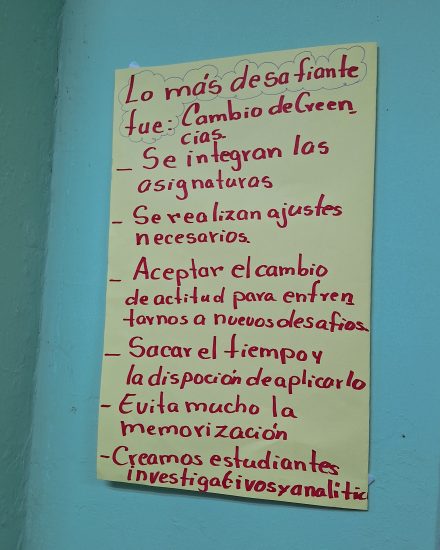 Lo más desafiante
fue: Cambio de Creen_
cias.
_ Se integran las
asignaturas
- Se realizan ajustes
necesarios.
_ Aceptar el cambio
de actitud para enfren
tarnos a nuevos desafios.
- Sacar el tiempo y
la dispoción de aplicarlo
- Evita mucho la
memorización
- Creamos estudiantes
investigativos y analitic